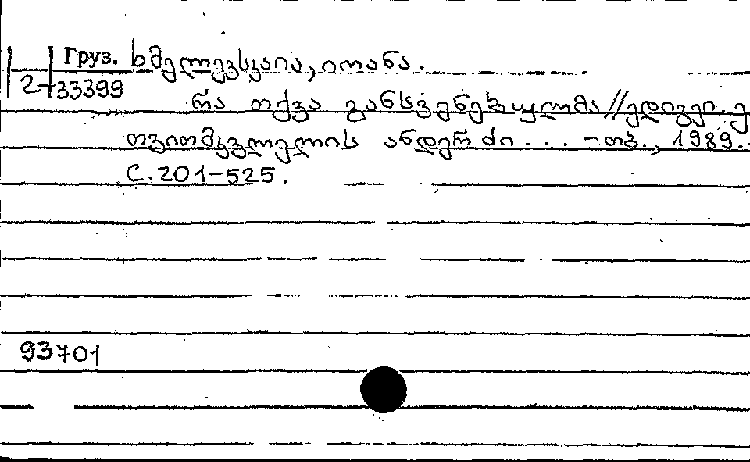 Груз. ხმელევსკაია, იოანა.
2-33399
რა თქვა განსვენებულმა // ედიგეი. ე
თვითმკვლელის ანდერძი... - თბ., 1989.
С. 201-525.
93701